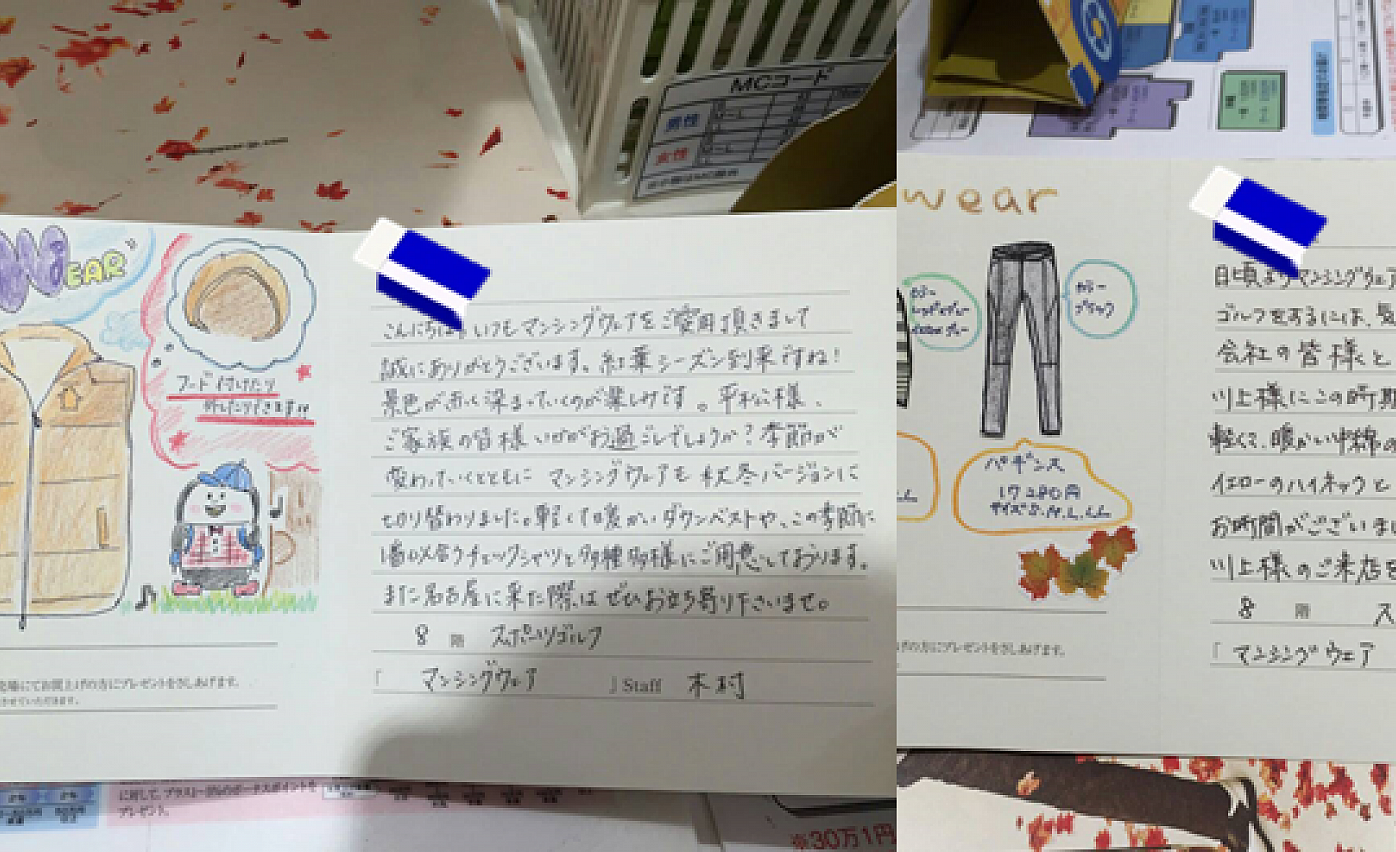 MCコード
男性
女性
WEAR"
フード付けたり
外したりできます!!
こんにちは。いつもマンシングウェアをご愛用頂きまして
誠にありがとうございます。紅葉シーズン到来ですね!
景色が赤く染まっていくのが楽しみです。平松様、
ご家族の皆様いかがお過ごしでしょうか?季節が
変わっていくとともに マンシングウェアも秋冬バージョンに
切り替わりました。軽くて暖かいダウンベストや、この季節に
1番似合うチェックシャツと多種多様にご用意しております。
また名古屋に来た際はぜひお立ち寄り下さいませ。
8 階 スポーツゴルフ
「 マンシングウェア 」Staff 木村
売場にてお買上げの方にプレゼントをさしあげます。
させていただきます。
に対して、プラス1~3%のボーナスポイントを
プレゼント。
※30万1円
wear
カラー
ブラック
パギンス
17280円
サイズ S.M.L.LL
げの方にプレゼントをさしあげます。
日頃よりマンシングウェア
ゴルフをするには、気
会社の皆様と
川上様にこの時期
軽くて、暖かい中綿の
イエローのハイネックと
お時間がございま
川上様のご来店を
8 階 ス
「 マンシングウェア